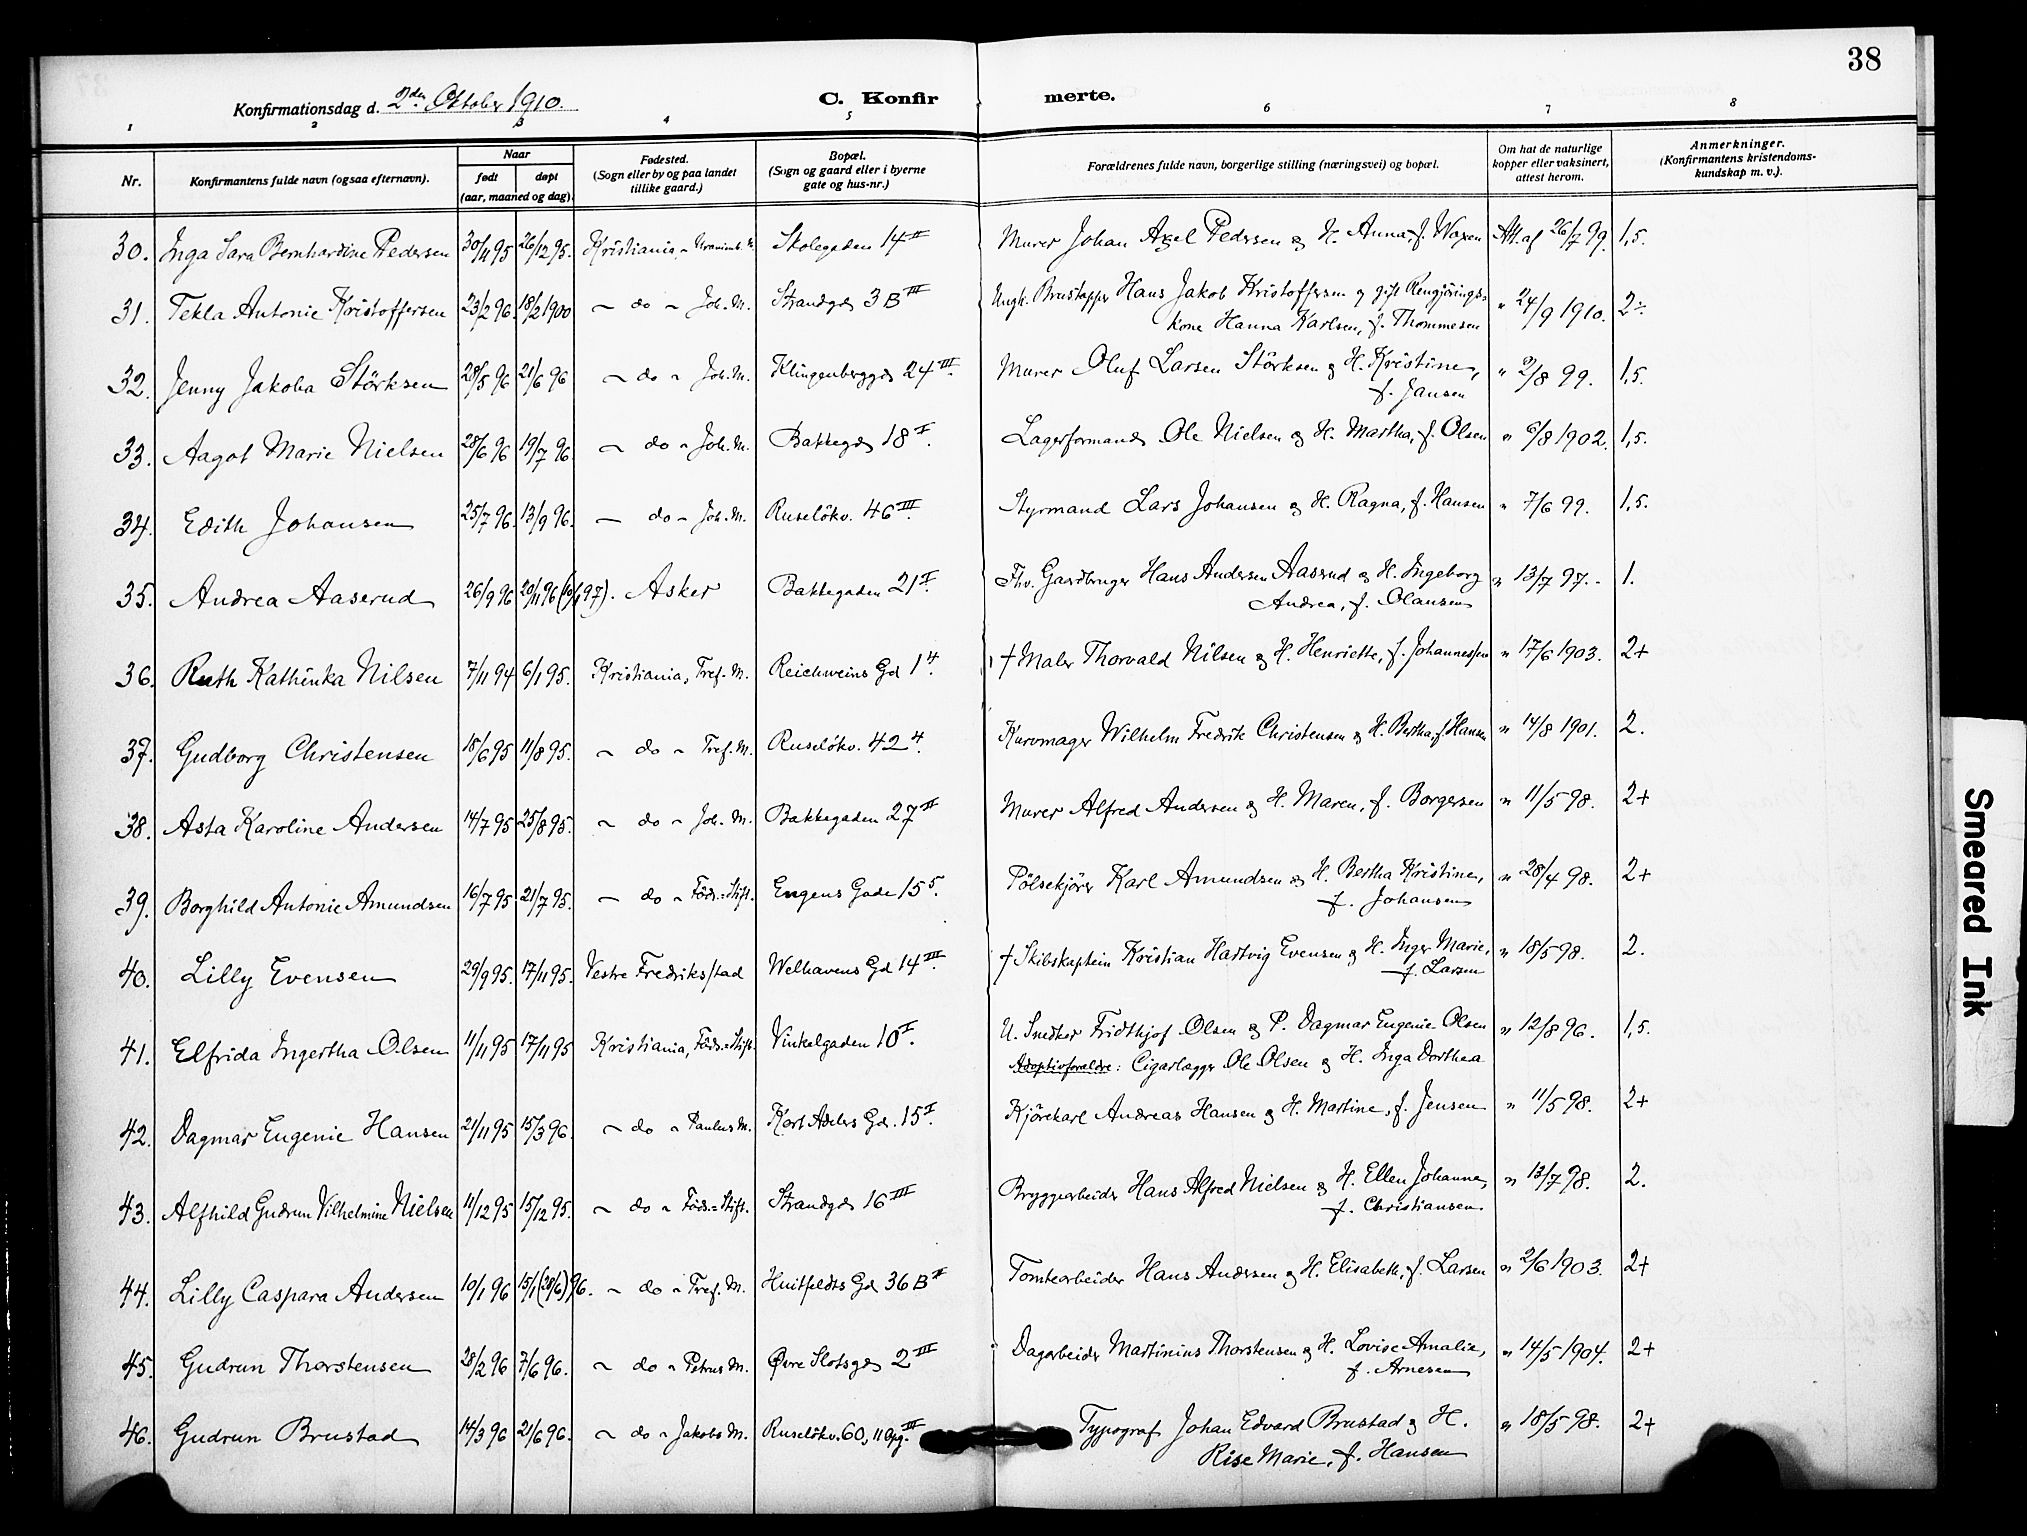 38
Konfirmationsdag d. 2den Oktober 1910.
C. Konfirmerte.
1 2 3 4 5 6 7 8
Nr.
Konfirmantens fulde navn (ogsaa efternavn).
Naar
født
døpt
(aar, maaned og dag).
Fødested.
(Sogn eller by og paa landet
tillike gaard.)
Bopæl.
(Sogn og gaard eller i byerne
gate og hus-nr.)
Forældrenes fulde navn, borgerlige stilling (næringsvei) og bopæl.
Om hat de naturlige
kopper eller vaksinert,
attest herom.
Anmerkninger.
(Konfirmantens kristendoms-
kundskap m. v.).
30. Inga Sara Bernhardine Pedersen 30/11 95 26/12 95. Kristiania, Skolegaden 14 II Murer Johan Axel Pedersen og H. Anna, f. Waxen Att. af 26/7 99. 1,5.
31. Tekla Antonie Kristoffersen 23/2 96. 18/2 1900 - do - Joh. M. Strandgd 3 B III Ungk. Brustapper Hans Jakob Kristoffersen og gift Rengjørings-
kone Hanna Karlsen, f. Thommesen " 24/9 1910. 2÷
32. Jenny Jakoba Störksen 28/5 96 21/6 96 - do - Joh. M. Klingenberggd 24 III. Murer Oluf Larsen Störksen og H. Kristine,
f. Jansen " 2/8 99. 1,5.
33. Aagot Marie Nielsen 28/6 96 19/7 96 - do - Joh. M. Bakkegd 18 I. Lagerformand Ole Nielsen og H. Martha, f. Olsen " 6/8 1902. 1,5.
34. Edith Johansen 25/7 96. 13/9 96. - do - Joh. M. Ruselökv. 46 III. Styrmand Lars Johansen og H. Ragna, f. Hansen " 7/6 99. 1,5.
35. Andrea Aaserud 26/9 96 20/11 96 Asker Bakkegaden 21 I. Fhv. Gaardbruger Hans Andersen Aaserud og H. Ingeborg
Andrea, f. Olausen " 13/7 97. 1.
36. Ruth Kathinka Nilsen 7/11 94 6/1 95. Kristiania, Tref. M. Reichweins Gd 1 4. † Maler Thorvald Nilsen og H. Henriette, f. Johannessen " 17/6 1903. 2+
37. Gudborg Christensen 18/6 95 11/8 95. - do - Tref. M. Ruselökv. 42 4. Kurvmager Wilhelm Fredrik Christensen og H. Bertha, f. Hansen " 14/8 1901. 2.
38. Asta Karoline Andersen 14/7 95 25/8 95. - do - Joh. M. Bakkegaden 27 II Murer Alfred Andersen og H. Maren, f. Borgersen " 11/5 98. 2+
39. Borghild Antonie Amundsen 16/7 95 21/7 95. - do - Föds.=Stift. Eugens Gade 15 5. Pölsekjörer Karl Amundsen og H. Bertha Kristine,
f. Johansen " 28/4 98. 2+
40. Lilly Evensen 29/9 95. 17/11 95. Vestre Fredrikstad Welhavens Gd 14 III. † Skibskaptein Kristian Hartvig Evensen og H. Inger Marie,
f. Larsen " 18/5 98. 2.
41. Elfrida Ingertha Olsen 11/11 95 17/11 95 Kristiania, Föds.=Stift. Vinkelgaden 10 I. U. Snedker Fridthjof Olsen og P. Dagmar Eugenie Olsen " 12/8 96. 1,5.
Adoptivforældre: Cigarlægger Ole Olsen og H. Inga Dorthea
42. Dagmar Eugenie Hansen 21/11 95 15/3 96. - do - Paulus M. Kort Adelers Gd. 15 I. Kjörekarl Andreas Hansen og H. Martine, f. Jensen " 11/5 98. 2+
43. Alfhild Gudrun Vilhelmine Nielsen 11/12 95 15/12 95. - do - Föds.=Stift. Strandgd 16 III Bryggearbeider Hans Alfred Nielsen og H. Ellen Johanne,
f. Christiansen " 13/7 98. 2.
44. Lilly Caspara Andersen 10/1 96 15/1 (28/6) 96. - do - Tref. M. Huitfeldts Gd 36 B II Tomtearbeider Hans Andersen og H. Elisabeth, f. Larsen " 2/6 1903. 2+
45. Gudrun Thorstensen 28/2 96 7/6 96. - do - Petrus M. Øvre Slotsgd 2 III Dagarbeider Martinius Thorstensen og H. Lovise Amalie,
f. Arnesen " 14/5 1904. 2+
46. Gudrun Brustad 14/3 96 21/6 96. - do - Jakobs M. Ruselökv. 60, 11 Opg. III Typograf Johan Edvard Brustad og H.
Rise Marie, f. Hansen " 18/5 98. 2+
Smeared Ink